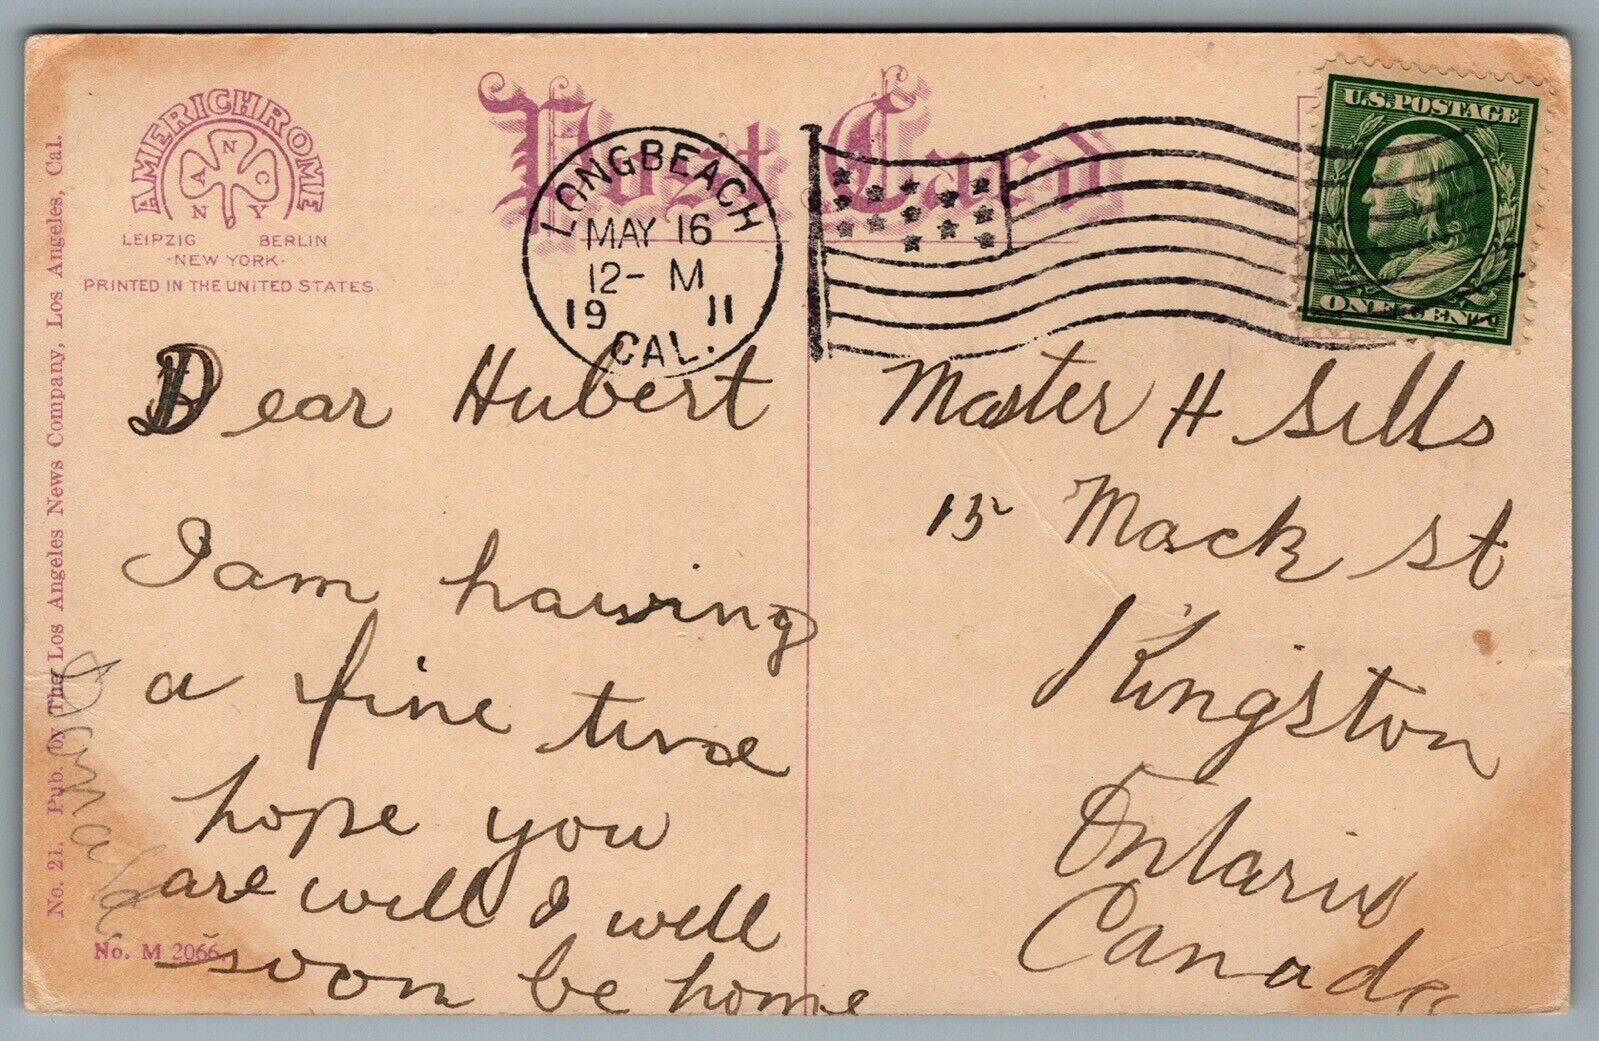 AMERICHROME
A N C
N Y
LEIPZIG BERLIN
·NEW YORK·
PRINTED IN THE UNITED STATES.
Post Card
LONG BEACH
MAY 16
12- M
19 11
CAL.
U.S. POSTAGE
ONE CENT
No. 21. Pub. by The Los Angeles News Company, Los Angeles, Cal.
No. M 2066.
Dear Hubert
I am having
a fine time
hope you
are well I well
soon be home
Master H Sills
15 Mack st
Kingston
Ontario
Canada